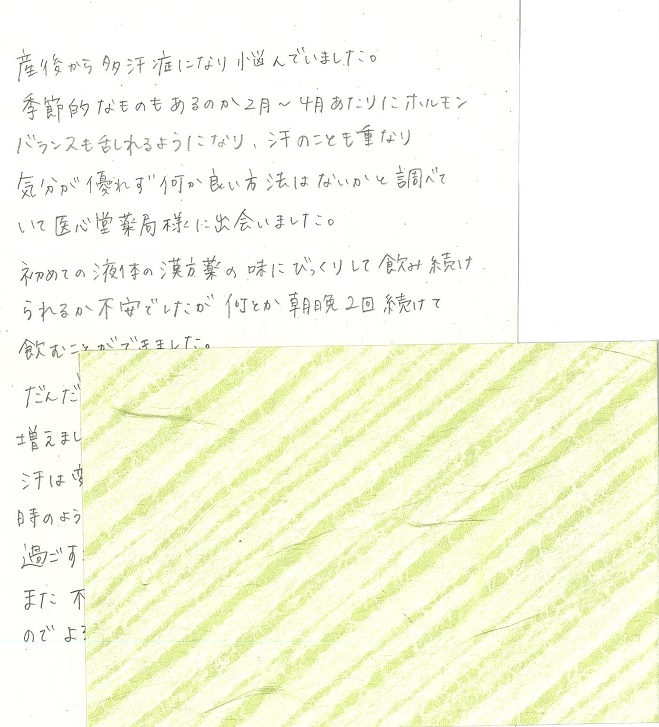 産後から多汗症になり悩んでいました。
季節的なものもあるのか2月～4月あたりにホルモン
バランスも乱れるようになり、汗のことも重なり
気分が優れず何か良い方法はないかと調べて
いて医心堂薬局様に出会いました。
初めての液体の漢方薬の味にびっくりして飲み続け
られるか不安でしたが何とか朝晩2回続けて
飲むことができました。
だんだ
増えまし
汗は
時のよう
過ごす
また不
のでよろ